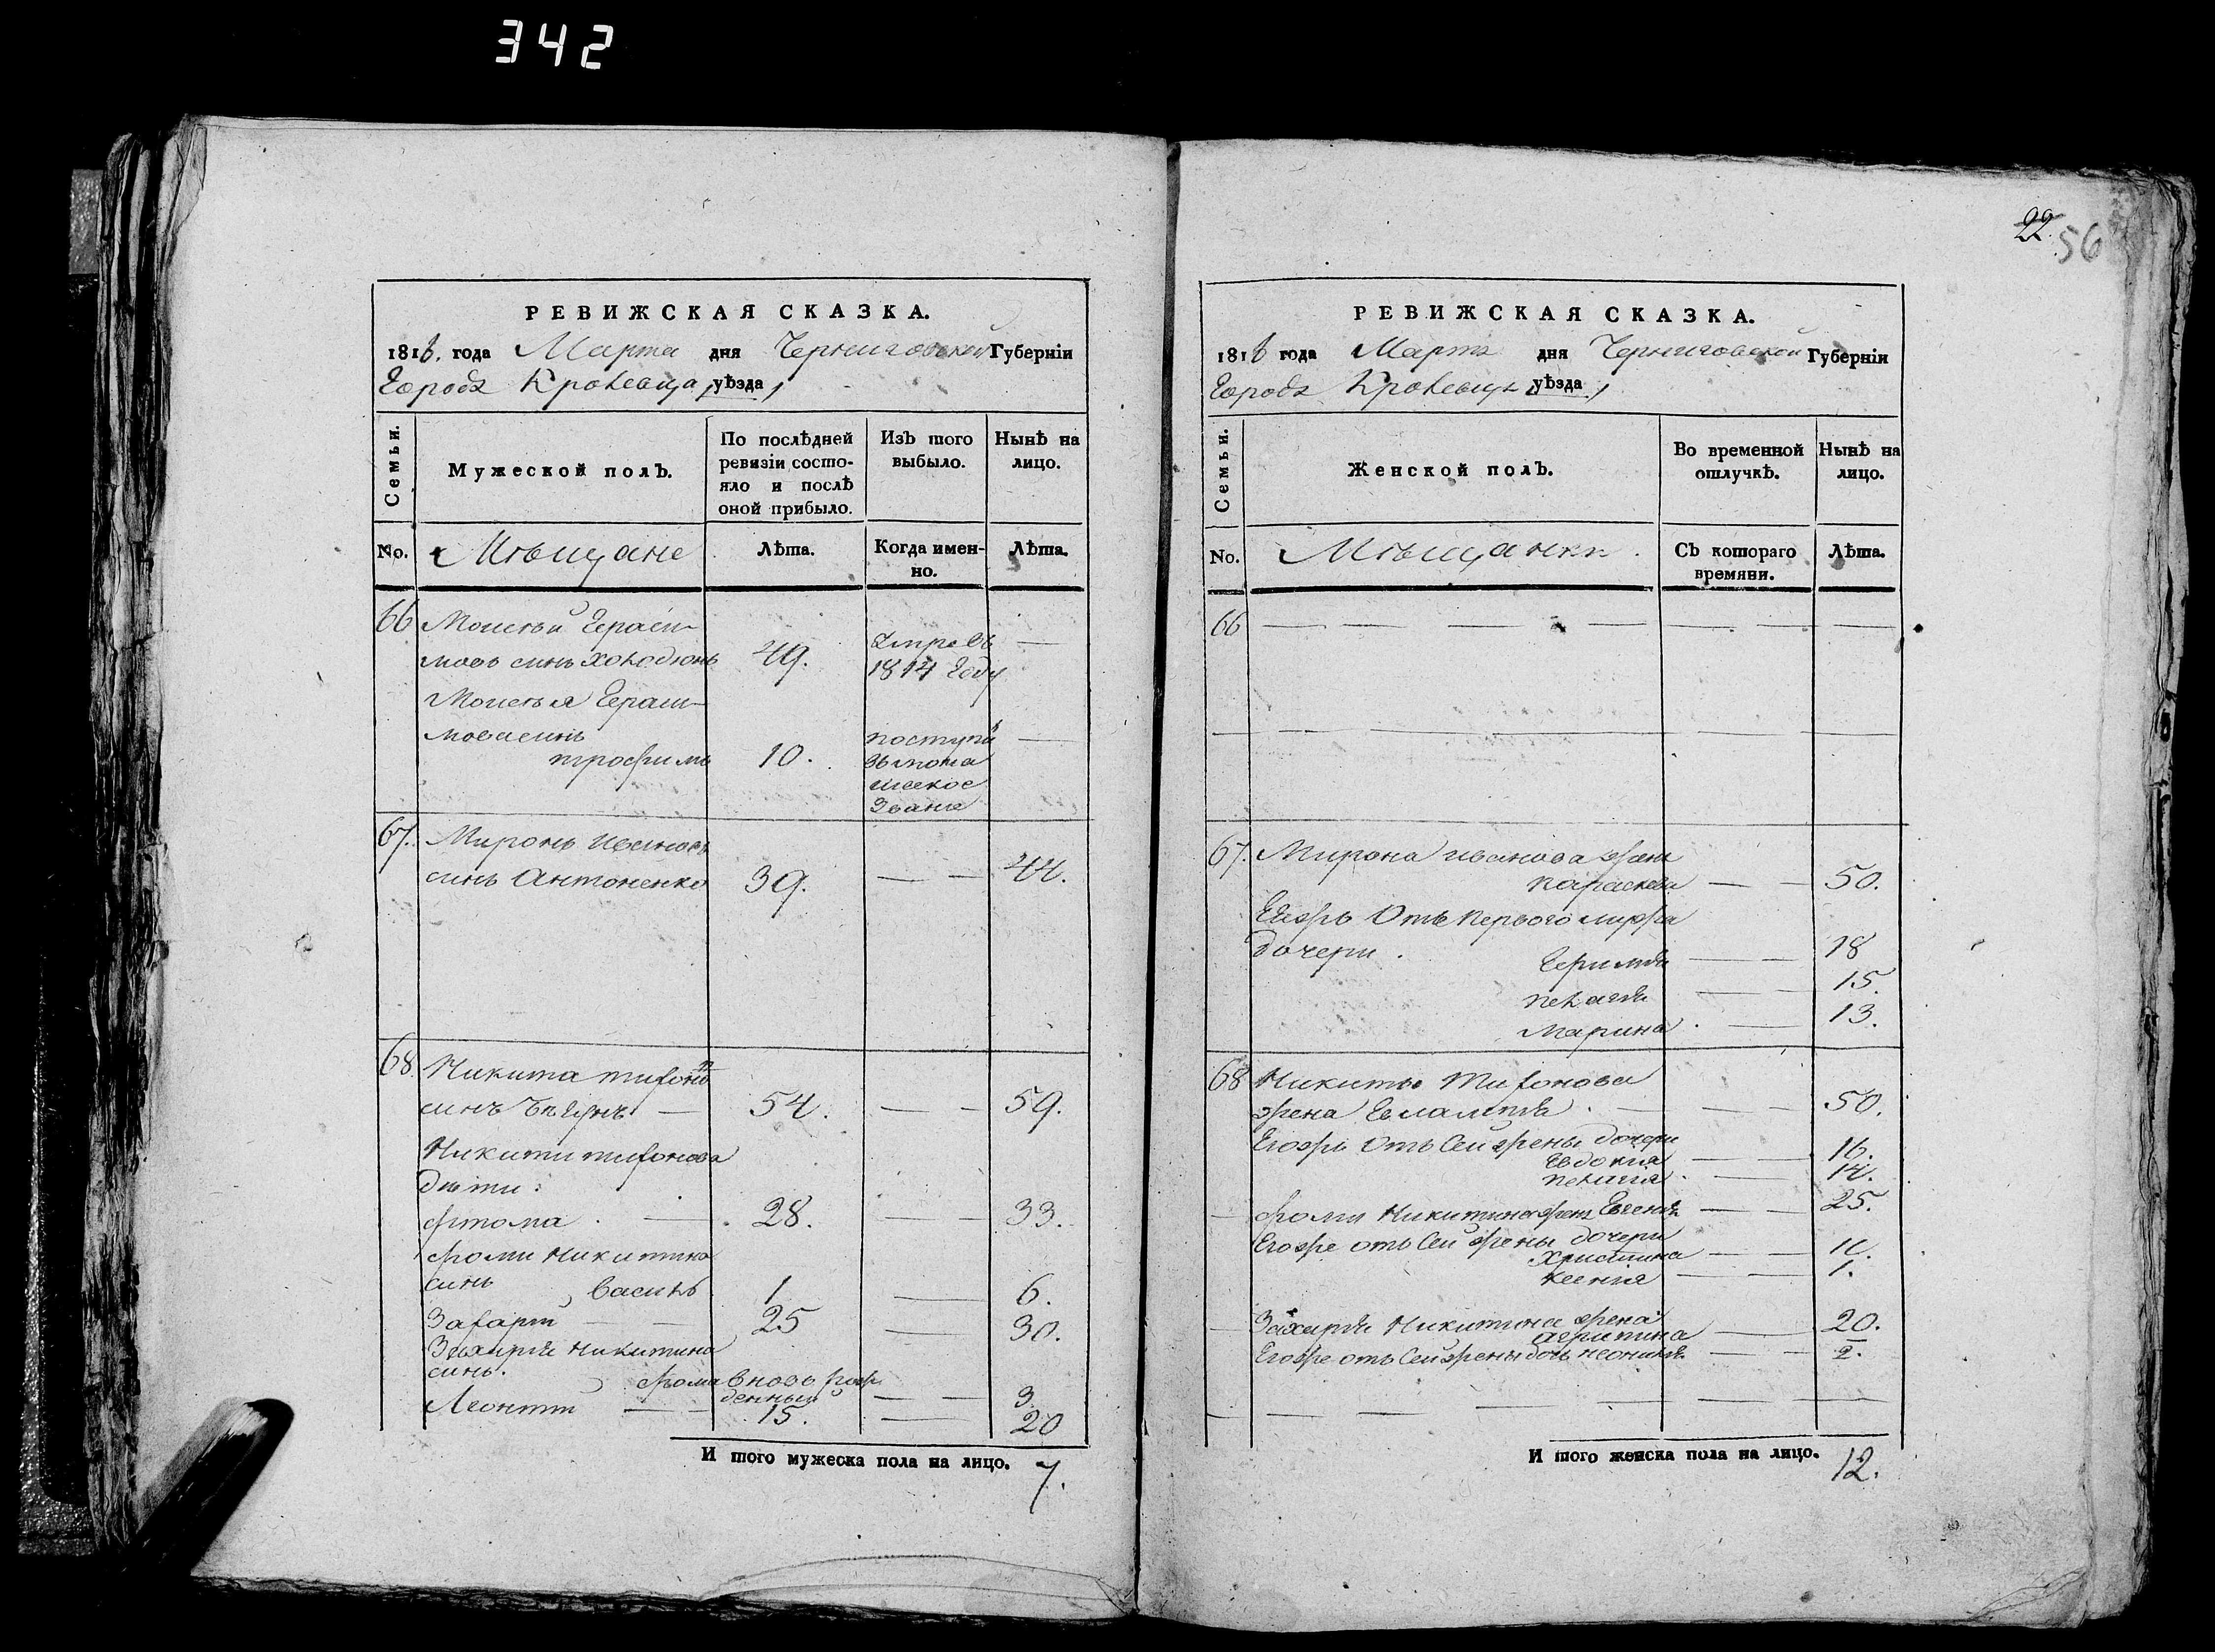 342
22.
56
РЕВИЖСКАЯ СКАЗКА.
1816. года Марта дня Черниговской Губерніи
Города Кролевца уѣзда
Семьи.
Мужеской полъ.
По послѣдней ревизіи состояло и послѣ оной прибыло.
Изъ того выбыло.
Нынѣ на лицо.
No.
Мѣщане
Лѣта.
Когда именно.
Лѣта.
66 Моисѣй Гераси-
мовъ синъ Холодюнъ 49. Умре въ —
1814 году
Моисѣя Гераси-
мова синъ поступи —
трофимъ 10.
званіе
67. Миронъ Ивановъ
синъ Антоненко 39. — — 44.
68. Никита тихонов
синъ 54. — — 59.
Никити тихонова
дѣти:
фтома — 28. — — 33.
фоми Никитина
синъ Василь 1 — 6.
Захарій — — 25 — 30.
Захарія Никитина
синъ. фома вновь рож
денный — — 3.
Леонтій — — 15. — 20
И того мужеска пола на лицо. 7.
РЕВИЖСКАЯ СКАЗКА.
1816 года Марта дня Черниговской Губерніи
Города Кролевца уѣзда
Семьи.
Женской полъ.
Во временной отлучкѣ.
Нынѣ на лицо.
No.
Мѣщанки.
Съ котораго времяни.
Лѣта.
66 — — — — — — —
67. Мирона иванова жена
параскева — — 50.
Егожъ Отъ первого
дочери. — — 18
пелагія — — 15.
Марина — 13.
68 Никиты Тихонова
жена Евлампія — — — 50.
Егожъ Отъ сей жены дочери
Евдокия — — 16.
пелагія — 14.
фоми Никитина жена Евгенія — — 25.
Егоже отъ сей жены дочери
Христина — — 10.
ксенія — — 1.
Захарія Никитина жена
агрипина — 20.
Егоже отъ сей жены дочь — — 2.
И того женска пола на лицо. 12.